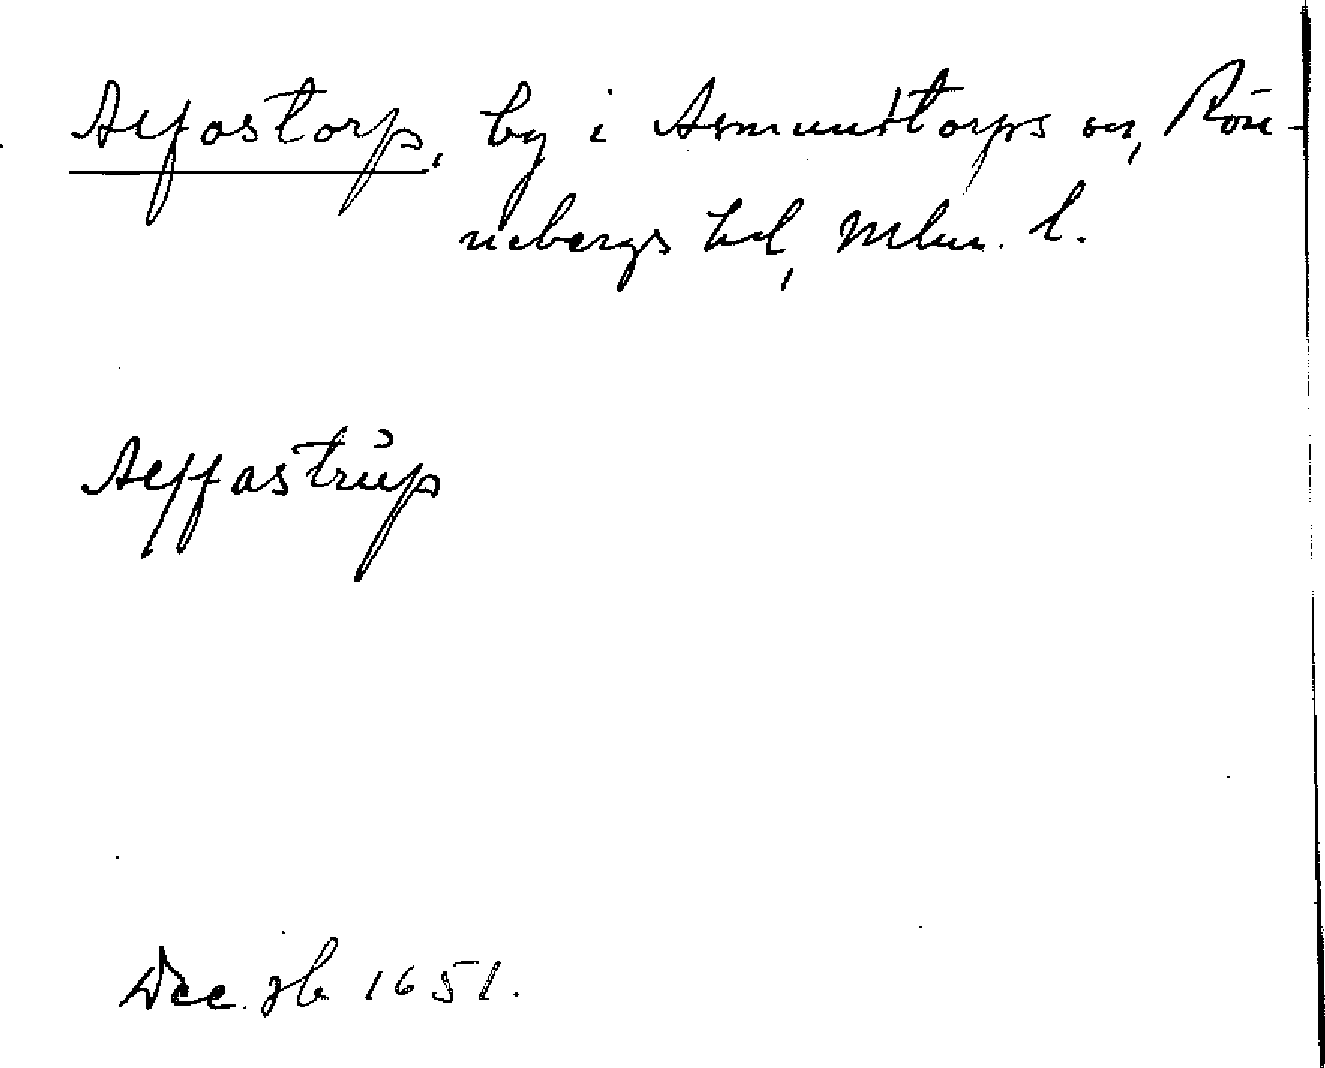 Alfastorp, by i Asmundtorps sn, Rön-
nebergs hd, Mlm. l.
Alffastrŭp
Dec. jb 1651.